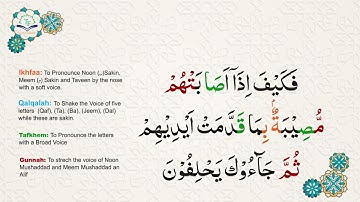 Ikhfaa: To Pronounce Noon (ن)Sakin,
Meem (م) Sakin and Taveen by the nose
with a soft voice.
Qalqalah: To Shake the Voice of five
letters (Qaf), (Ta), (Ba), (Jeem), (Dal)
while these are sakin.
Tafkhem: To Pronounce the letters
with a Broad Voice
Gunnah: To strech the voice of Noon
Mushaddad and Meem Mushaddad an
Alif
فَكَيْفَ اِذَآ اَصَابَتْهُمْ
مُّصِيْبَةٌۢ بِمَا قَدَّمَتْ اَيْدِيْهِمْ
ثُمَّ جَآءُوْكَ يَحْلِفُوْنَ